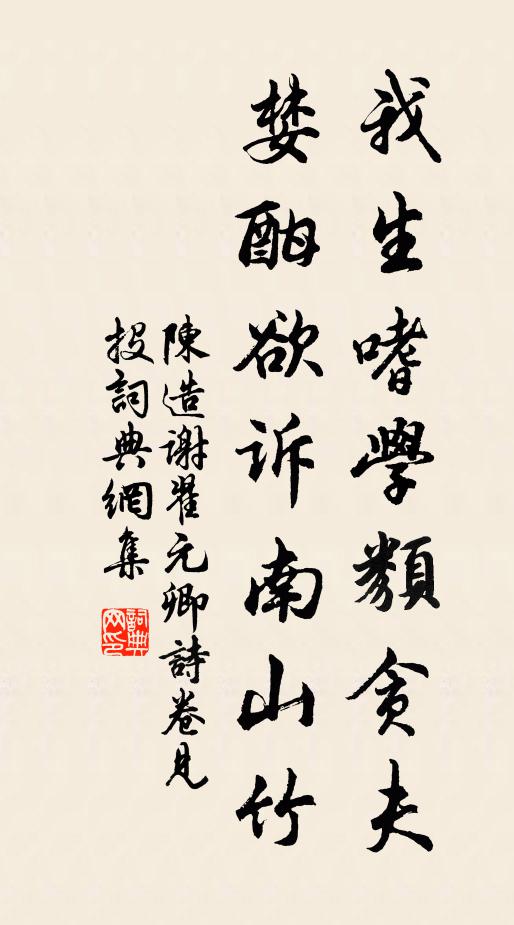 我生嗜學類貪夫
婪酣欲訴南山竹
陳造謝翟元卿詩卷見
投詞典網集
詞典網印